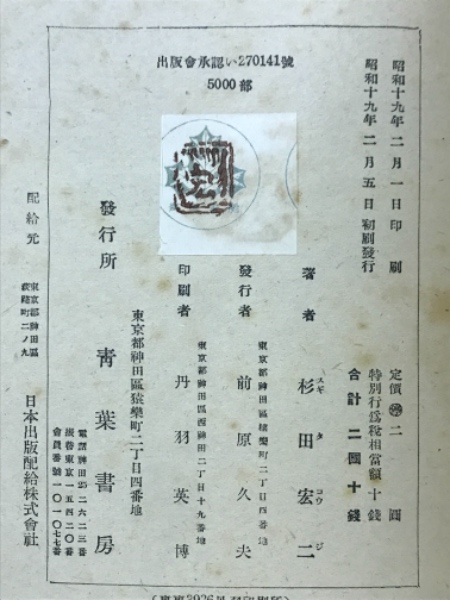 出版會承認い270141號
5000部
昭和十九年二月一日印刷
昭和十九年二月五日初刷發行
定價㊞二圓
特別行爲税相當額十錢
合計二圓十錢
著者 杉田宏二
スギタコウジ
發行者 前原久夫
東京都神田區猿樂町二丁目四番地
印刷者 丹羽英博
東京都神田區西神田二丁目十九番地
發行所 靑葉書房
東京都神田區猿樂町二丁目四番地
電話神田 二六二三番
振替東京一五四二〇番
會員番號一〇一〇七七番
配給元
東京都神田區
淡路町二ノ九
日本出版配給株式會社